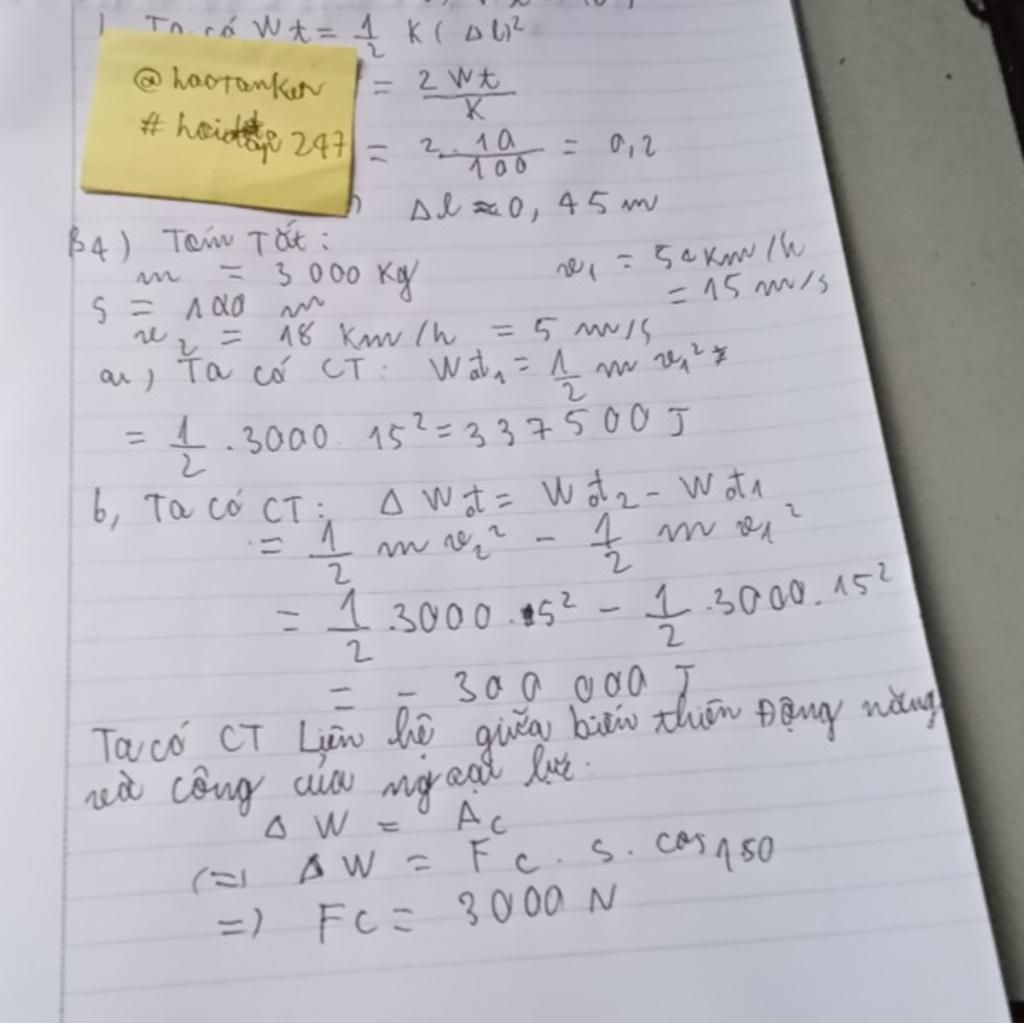 Ta có Wt = 1/2 K(Δl)²
@haotanken
#hoidap247
= 2Wt/K
= 2.10/100 = 0,2
Δl ≈ 0,45 m
B4) Tóm Tắt:
m = 3000 Kg
v₁ = 54 Km/h
= 15 m/s
s = 100 m
v₂ = 18 Km/h = 5 m/s
a, Ta có CT: Wđ₁ = 1/2 m v₁²
= 1/2 . 3000 15² = 337500 J
b, Ta có CT: ΔWđ = Wđ₂ - Wđ₁
= 1/2 m v₂² - 1/2 m v₁²
= 1/2 .3000 . 5² - 1/2 .3000. 15²
= - 300 000 J
Ta có CT Liên hệ giữa biến thiên Động năng
và công của ngoại lực.
ΔW = Ac
(=) ΔW = Fc . s . cos 180
=) Fc = 3000 N